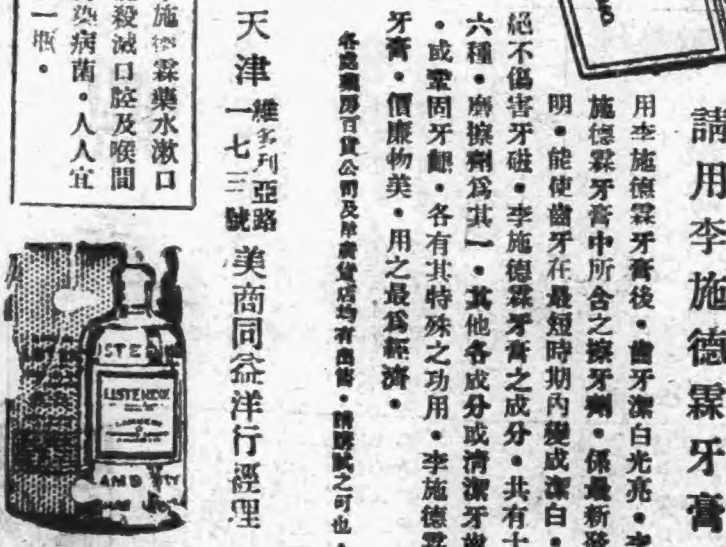 請用李施德霖牙膏
用李施德霖牙膏後。齒牙潔白光亮。李
施德霖牙膏中所含之擦牙劑。係最新發
明。能使齒牙在最短時期內變成潔白。
絕不傷害牙磁。李施德霖牙膏之成分。共有十
六種。磨擦劑爲其一。其他各成分或清潔牙齒
。或鞏固牙齦。各有其特殊之功用。李施德霖
牙膏。價廉物美。用之最爲經濟。
各處藥房百貨公司及洋廣貨店均有出售。請購試之可也。
天津維多利亞路一七三號美商同益洋行經理
施德霖藥水漱口
殺滅口腔及喉間
染病菌。人人宜
一瓶。
LISTERINE